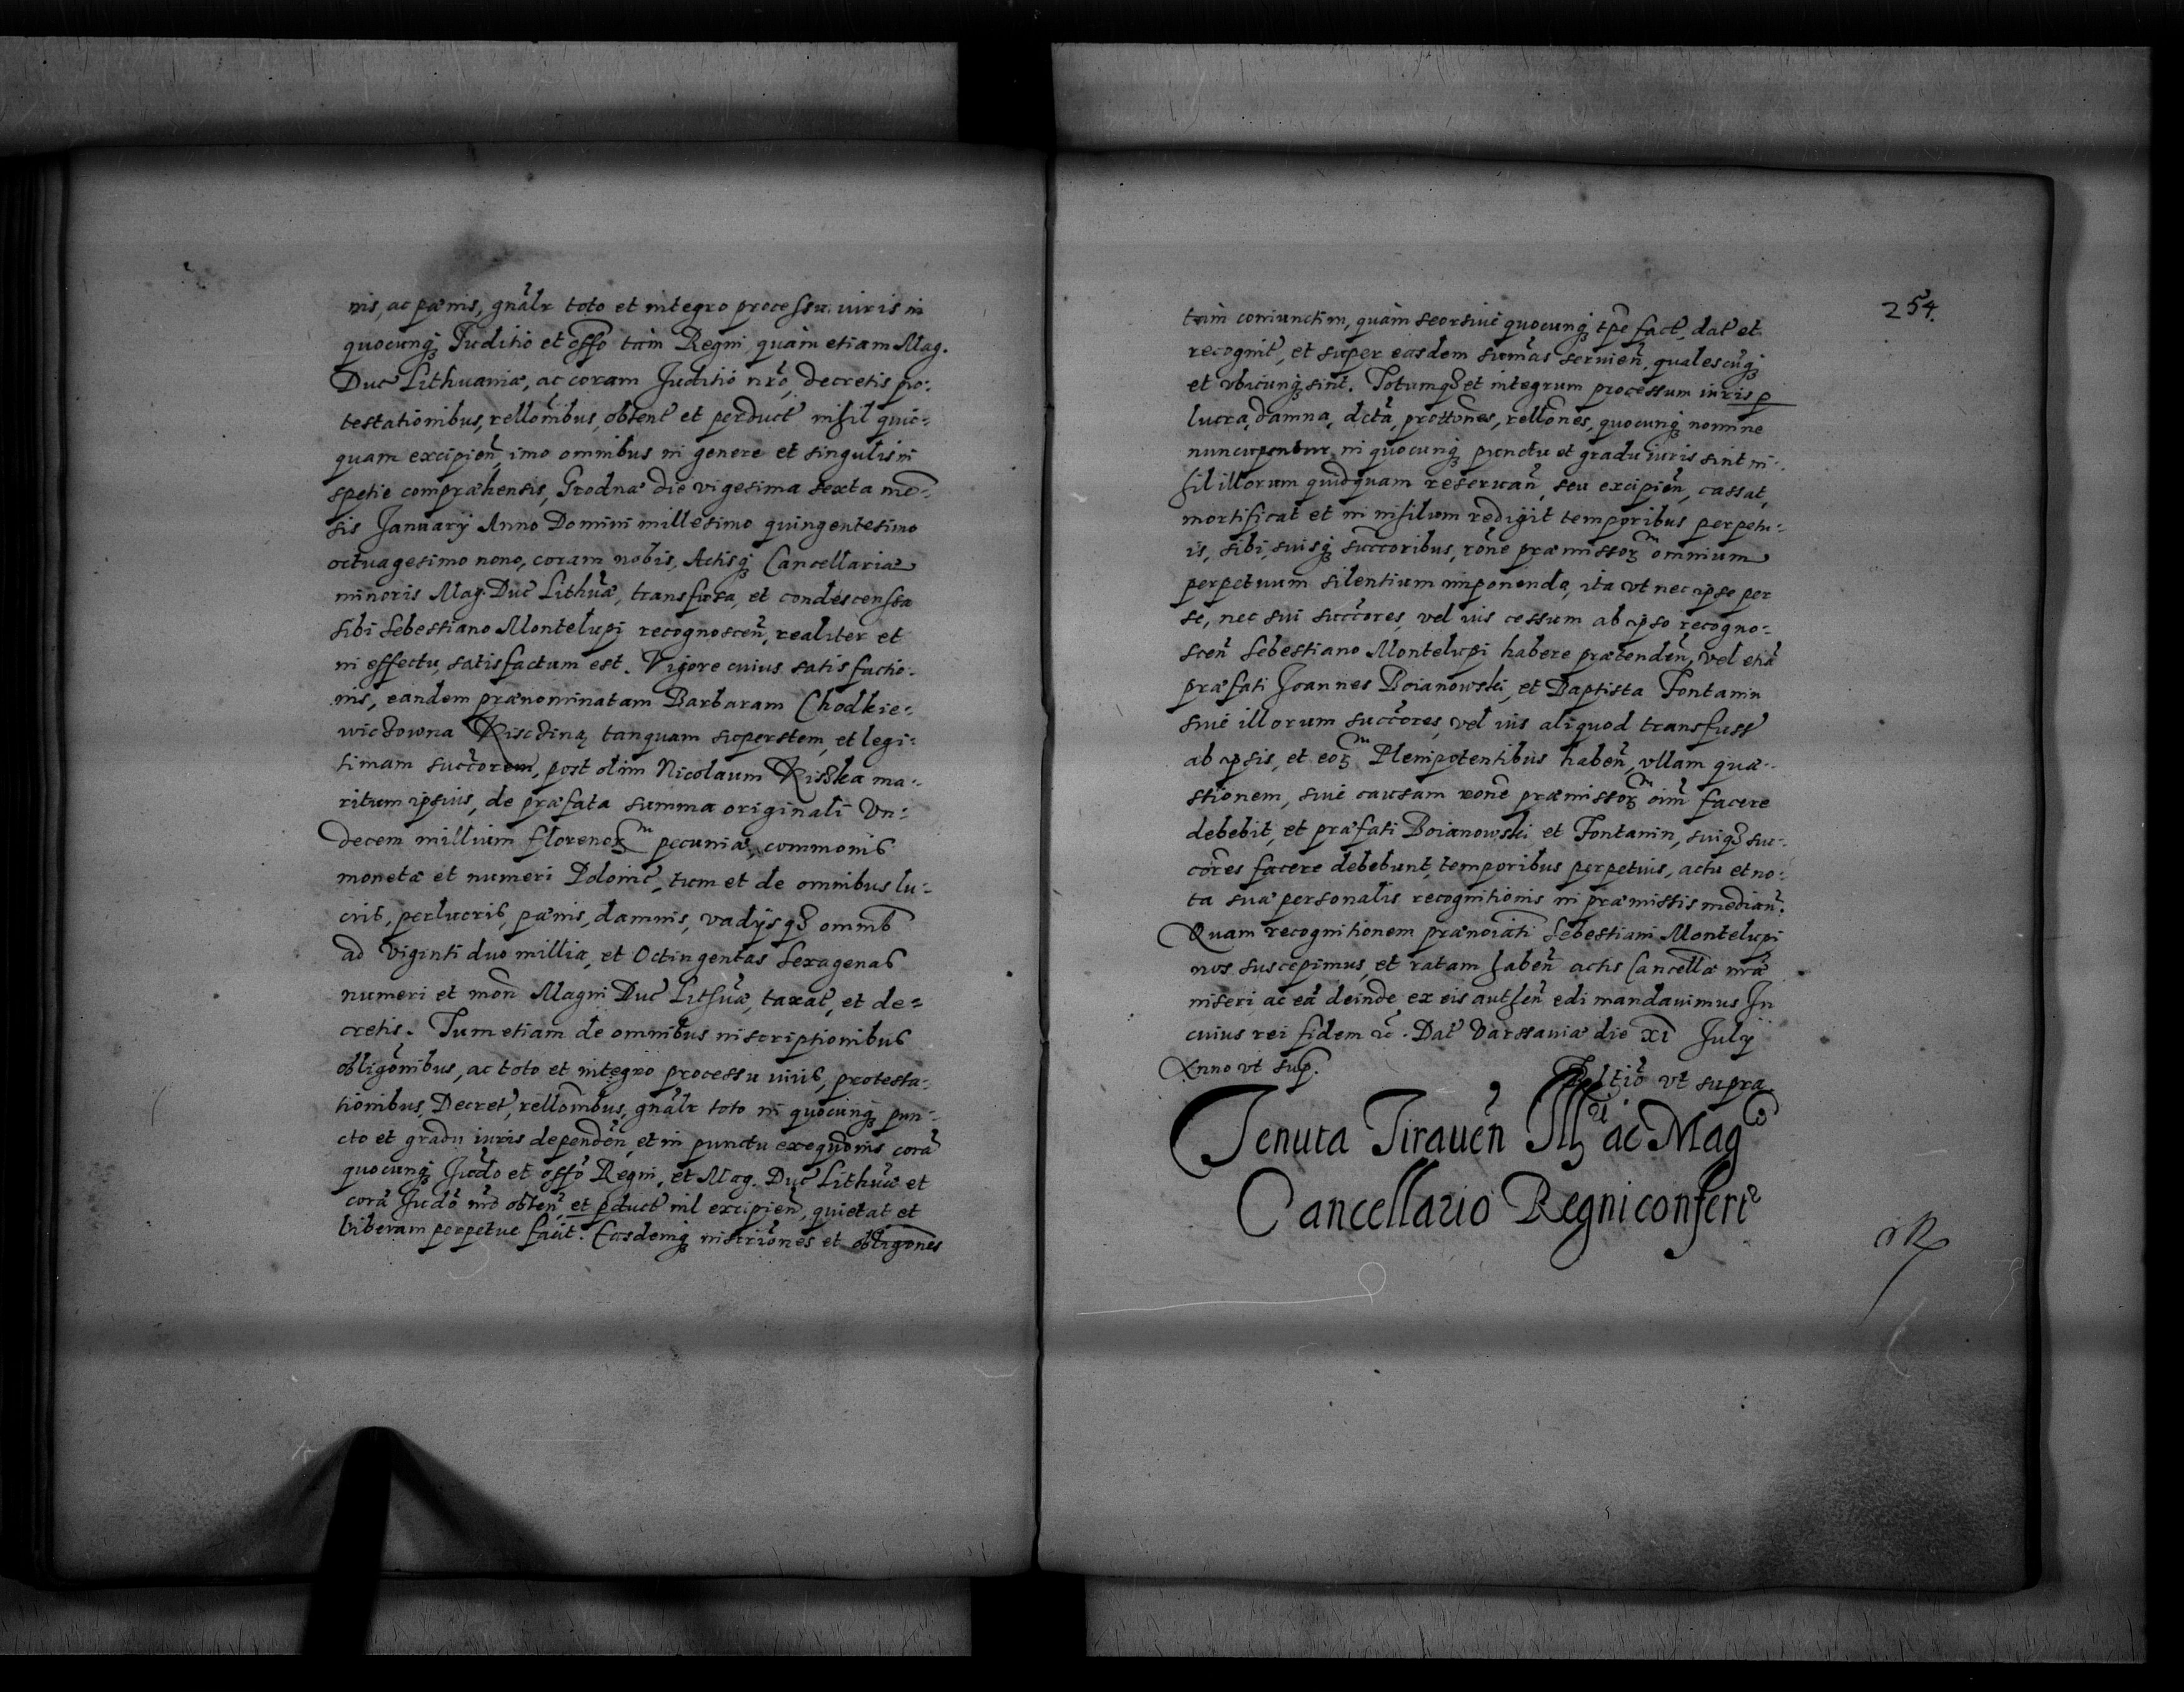 nis, ac pænis, gnãlr toto et integro processu iuris in
quocunq₃ Juditio et offo tam Regni quam etiam Mag.
Duc Lithuaniæ, ac coram Juditio nr̃o, decretis pro-
testationibus, rellonibus, obtent et perduct nihil quic-
quam excipien, imo omnibus in genere et singulis in
spetie compræhensis, Grodnæ die vigesima sexta mẽ-
sis Januarij Anno Domini millesimo quingentesimo
octuagesimo nono, coram nobis, Actisq₃ Cancellariæ
minoris Mag. Duc Lithuæ, transfusa, et condescensa
sibi Sebestiano Montelupi recognoscen, realiter et
in effectu, satisfactum est. Vigore cuius satisfactio-
nis, eandem prænominatam Barbaram Chodkie-
wiczowna Kiscziną tanquam superstem, et legi-
timam succtorem, post olim Nicolaum Kiszka ma-
ritum ipsius, de præfata summa originali Vn-
decem millium florenor̃ pecuniæ, commonis
monetæ et numeri Polonic, tum et de omnibus lu-
cris, perlucris, pænis, damnis, vadijsq₃ omnib
ad viginti duo millia, et Octingentas sexagenas
numeri et mon Magni Duc Lithuæ, taxat, et de=
cretis. Tum etiam de omnibus inscriptionibus
obligõnibus, ac toto et integro processu iuris, protesta-
tionibus, Decret, rellonibus, gnãlr toto in quocunq₃ pun-
cto et gradu iuris dependen, et in punctu exequõnis corã
quocunq₃ Judo et offo Regni, et Mag. Duc Lithuæ et
corã Judo nro obten, et pduct nil excipien, quietat et
liberam perpetue facit. Easdemq₃ inscriones et obligones
254.
tam coniunctim, quàm seorsiue quocunq₃ tpe fact, dat et
recognit, et super easdem sumas seruien, qualescũq₃
et vbicunq₃ sint. Totumq₃ et integrum processum iuris p
lucra, damna, dctã, prottones, rellones, quocunq₃ nomine
nuncupentur in quocunq₃ punctu et gradu iuris sint ni-
hil illorum quidquam reseruan, seu excipien, cassat,
mortificat et in nihilum redigit temporibus perpetu-
is, sibi, suisq₃ succtoribus, rõne præmissor̃ omnium
perpetuum silentium imponendo, ita vt nec ipse per
se, nec sui succtores, vel ius cessum ab ipso recogno-
scen Sebestiano Montelupi habere prætenden, vel etiã
præfati Joannes Boianowski, et Baptista Fontanin
siue illorum succtores, vel ius aliquod transfuss
ab ipsis, et eor̃ Plenipotentibus haben, vllam quæ-
stionem, siue causam rone præmissor̃ oim facere
debebit, et præfati Boianowski et Fontanin, suiq₃ suc-
cores facere debebunt, temporibus perpetuis, actu et no-
ta suæ personalis recognitionis in præmissis median.
Quam recognitionem prænoiati Sebestiani Montelupi
nos suscepimus, et ratam haben actis Cancellæ nræ
inseri ac eã deinde ex eis authen edi mandauimus In
cuius rei fidem &c. Dat Varssauiæ die xi July
Anno vt sup.
Reltio vt supra
Tenuta Tirauen Illi ac Magco
Cancellario Regni confert